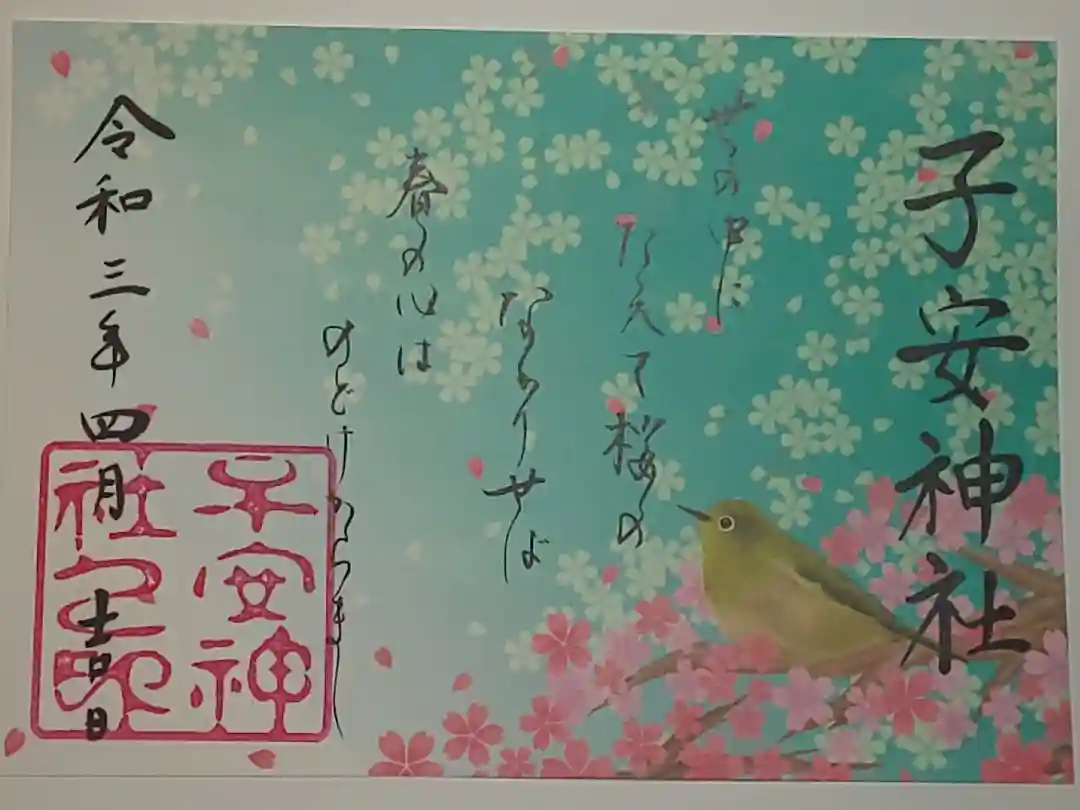 子安神社
世の中に
たえて桜の
なかりせば
春の心は
のどけからまし
令和三年四月吉日
子安神
社